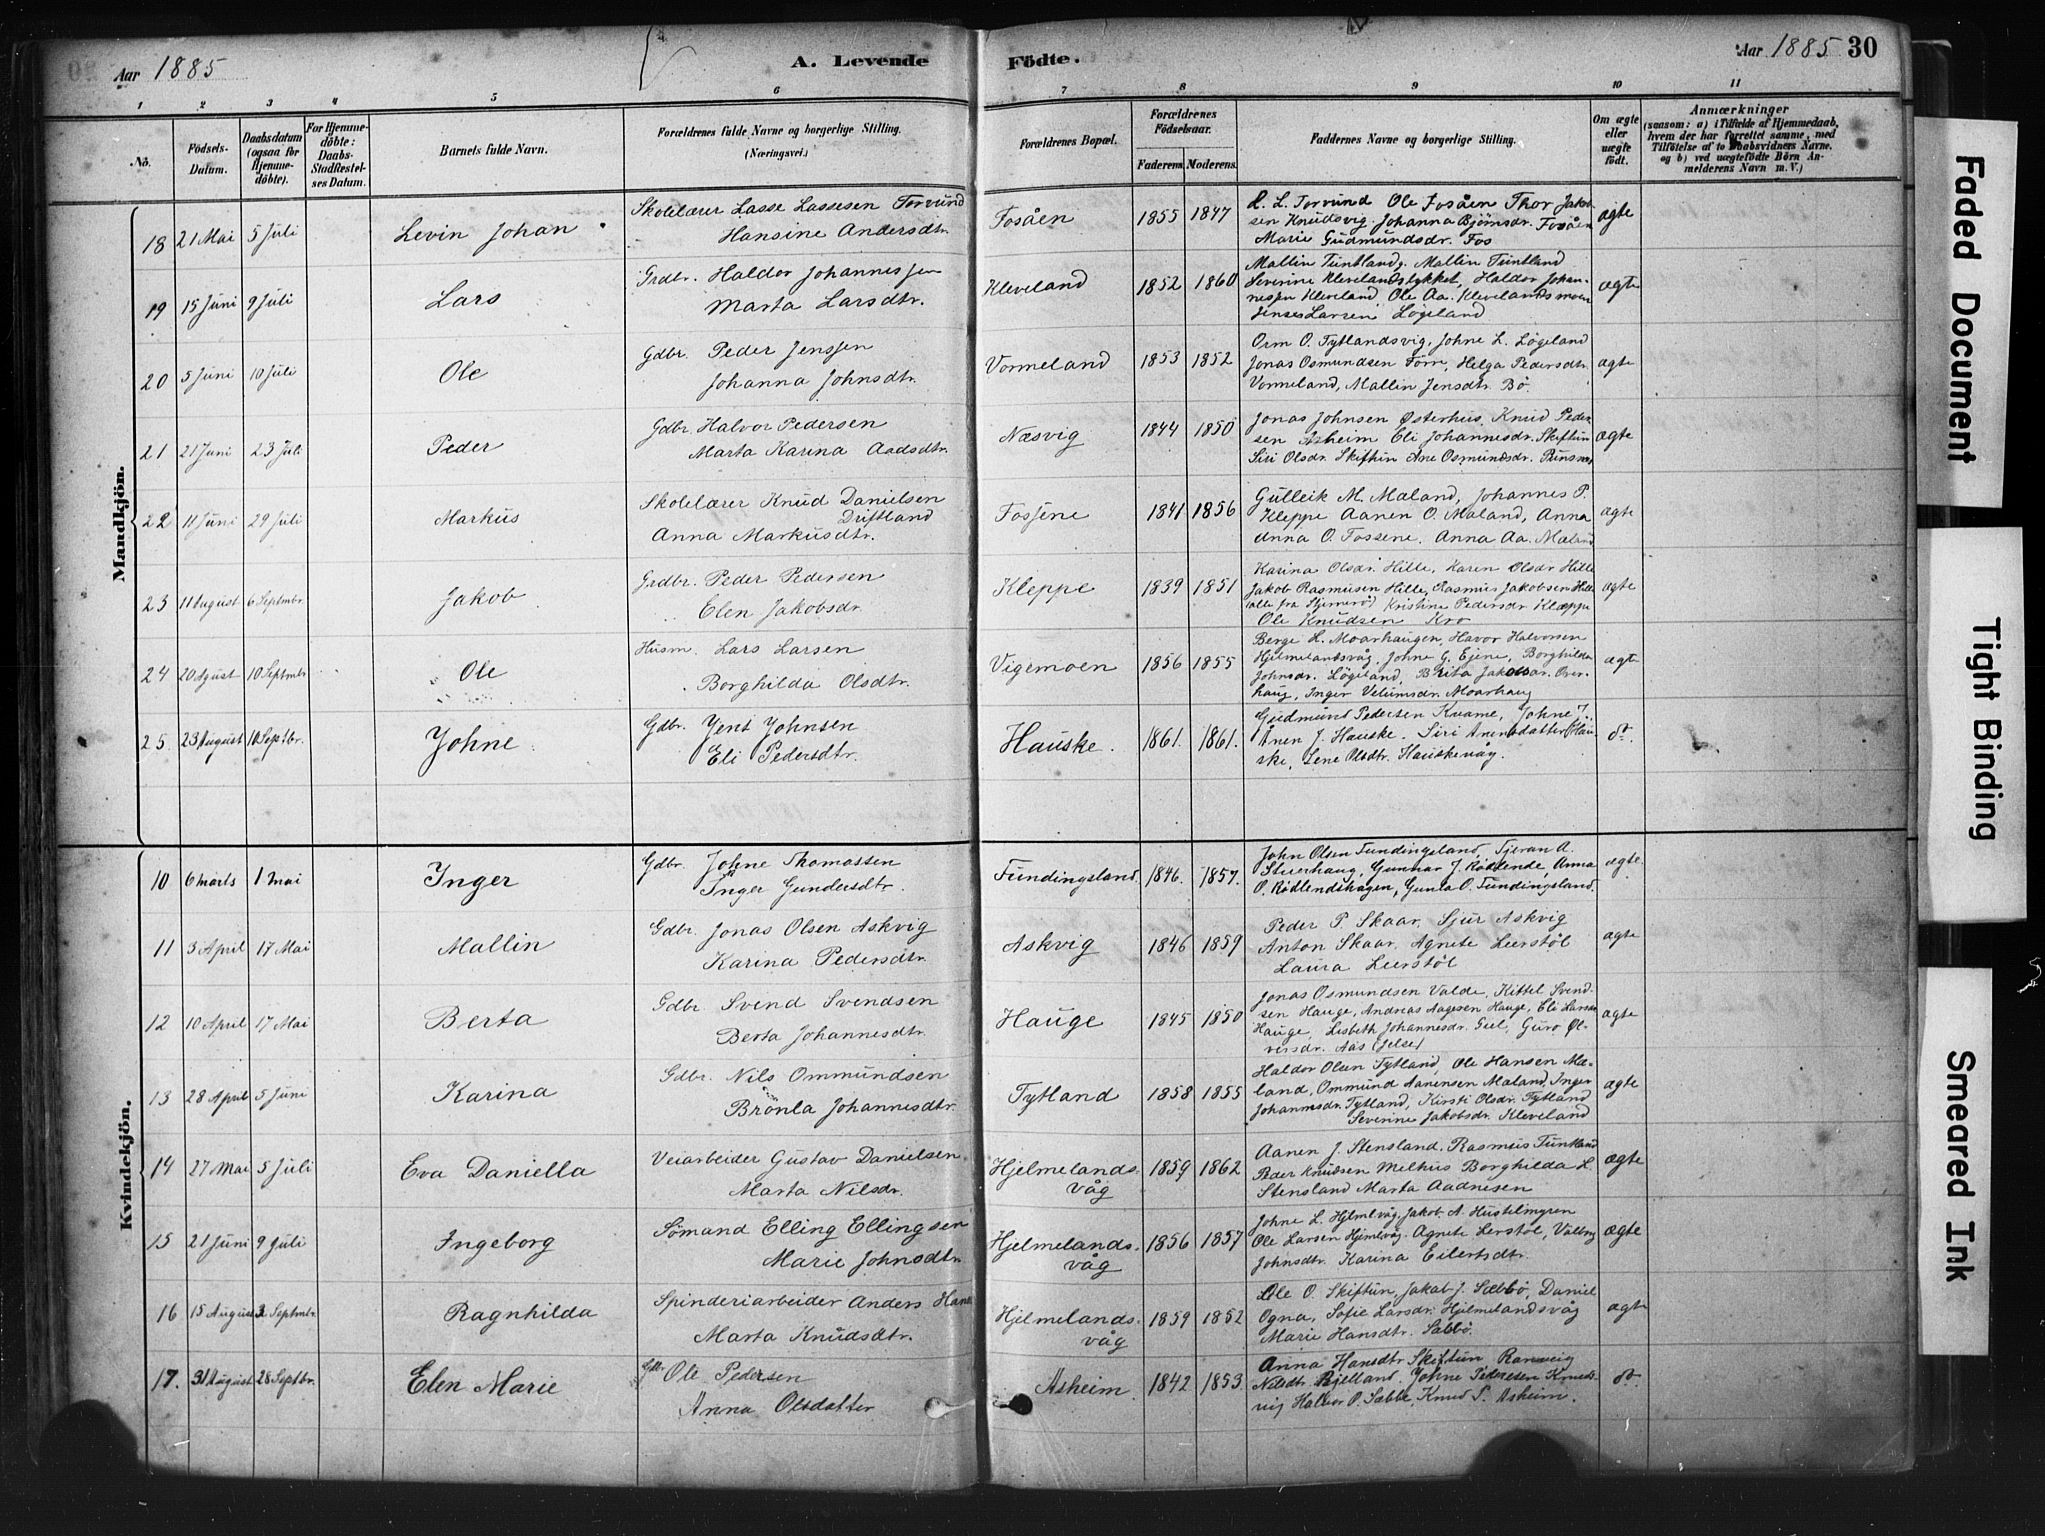 Aar 1885
A. Levende
Födte.
Aar 1885 30
1 2 3 4 5 6 7 8 9 10 11
No.
Födsels-Datum.
Daabsdatum (ogsaa for Hjemmedöbte).
For Hjemmedöbte: Daabs-Stadfæstelses Datum.
Barnets fulde Navn.
Forældrenes fulde Navne og borgerlige Stilling. (Næringsvei.)
Forældrenes Bopæl.
Forældrenes Födselsaar.
Faderens Moderens
Faddernes Navne og borgerlige Stilling.
Om ægte eller uægte födt.
Anmærkninger
(saasom: a) i Tilfælde af Hjemmedaab, hvem der har forrettet samme, med Tilföielse af to Daabsvidners Navne, og b) ved uægtefödte Börn Anmelderens Navn m. V.)
Mandkjön.
18 21 Mai 5 Juli Levin Johan Skolelærer Lasse Lassesen Torvund Fosåen 1855 1847 L. L. Torvund Ole Fosåen Thor Jakob- ægte
Hansine Andersdtr. sen Knudsvig Johanna Bjørnsdr. Fosåen
Marie Gudmundsdr. Fos
19 15 Juni 9 Juli Lars Grdbr. Haldor Johannessen Kleveland 1852 1860 Mallin Tuntland, Mallin Tuntland ægte
Marta Larsdtr. Severine Klevelandstykket, Haldor Johan-
nessen Kleveland, Ole Aa. Klevelandsmoen
Jens Larsen Løgeland
20 5 Juni 10 Juli Ole Gdbr. Peder Jenssen Vormeland 1853 1852 Orm O. Tytlandsvig, Johne L. Løgeland ægte
Johanna Johnsdtr. Jonas Osmundsen Førre, Helga Pedersdtr.
Vormeland, Mallin Jensdtr. Bø
21 21 Juni 23 Juli Peder Gdbr. Halvor Pedersen Næsvig 1844 1850 Jonas Johnsen Østerhus, Knud Peder- ægte
Marta Karina Aadsdtr. sen Asheim Eli Johannesdr. Skiftun
Siri Olsdr. Skiftun Ane Osmundsdr.
22 11 Juni 29 Juli Markus Skolelærer Knud Danielsen Fossene 1841 1856 Gulleik M. Mæland, Johannes P. ægte
Driftland Kleppe Aanen O. Mæland, Anna
Anna Markusdtr. Anna O. Fossene. Anna Aa. Mæland
23 11 August 6 Septembr. Jakob Grdbr. Peder Pedersen Kleppe 1839 1851 Karina Olsdr. Hille, Karen Olsdr Hille ægte
Elen Jakobsdr. Jakob Rasmusen Hille, Rasmus Jakobsen Hille
(alle fra Stjernerø) Kristine Pedersdr Kleppe
Ole Knudsen Kro
24 20 Agust 10 Septmbr Ole Husm. Lars Larsen Vigemoen 1856 1855 Berge L. Moarhaugen, Havor Halvorsen ægte
Borghilda Olsdtr. Hjelmelandsvåg, Johne G. Ejene, Borghilda
Johnsdr. Løgeland, Brita Jakobsdr. Over-
haug, Inger Velumsdr. Moarhaug
25. 23 August 10 Septbr. Johne Gdbr. Jens Johnsen Hauske. 1861. 1861. Gudmund Pedersen Kvame, Johne J. do.
Eli Pedersdtr. Ånen J. Hauske. Siri Anensdatter Hau-
ske, Lene Olsdtr. Hauskevåg.
Kvindekjön.
10 6 Marts 1 Mai Inger Gdbr. Johne Thomassen Fundingsland. 1846. 1857. John Olsen Fundingsland, Tjeran A. ægte.
Inger Gundersdtr. Stuerhaug, Gunnar J. Rødlende, Anna
O. Rødlendshagen, Gunla O. Fundingsland.
11 3 April 17 Mai Mallin Gdbr. Jonas Olsen Askvig Askvig 1846 1859 Peder P. Skaar, Sjur Askvig ægte
Karina Pedersdtr. Anton Skaar, Agnete Leerstøl
Laura Leerstøl
12 10 April 17 Mai Berta Gdbr. Svend Svendsen Hauge 1845 1850 Jonas Osmundsen Valde, Kittel Svend- ægte
Berta Johannesdtr. sen Hauge, Andreas Aagesen Hauge, Eli Larsdr
Hauge, Lisbeth Johannesdr. Giel, Guro Ol-
versdr. Aas (Jelse)
13 28 April 5 Juni Karina Gdbr. Nils Ommundsen Tytland 1858 1855 Haldor Olsen Tytland, Ole Hansen Mæ- ægte
Brønla Johannesdtr. land, Ommund Aanensen Mæland, Inger
Johannesdr. Tytland, Kirsti Olsdr. Tytland
Severine Jakobsdr. Kleveland
14 27 Mai 5 Juli Eva Daniella Veiarbeider Gustav Danielsen Hjelmelands- 1859 1862 Aanen J. Stensland, Rasmus Tuntland ægte
Marta Nilsdr. våg Peder Knudsen Melhus Borghilda L.
Stensland Marta Aadnesen
15 21 Juni 9 Juli Ingeborg Sømand Elling Ellingsen Hjelmelands- 1856 1857 Johne L. Hjelmlvåg, Jakob A. Hustelmyren ægte
Marie Johnsdtr. våg Ole Larsen Hjemlvåg. Agnete Lerstøl, Valborg
Johnsdtr. Karina Eilertsdtr.
16 15 August 3 Septembr. Ragnhilda Spinderiarbeider Anders Hans Hjelmelands- 1859 1852 Ole O. Skiftun, Jakob J. Sæbbø, Daniel ægte
Marta Knudsdtr. våg Ogna, Sofie Larsdr. Hjelmelandsvåg
Marie Hansdtr. Sæbbø.
17. 31 August 28 Septbr. Elen Marie Gdbr Ole Pedersen Asheim. 1842 1853 Anna Hansdtr Skiftun Ranveig do
Anna Olsdatter Nilsdtr. Bjelland, Johne Pedersen Knuds-
vig Halvor O. Sabbe, Knud P. Asheim.
Faded Document
Tight Binding
Smeared Ink